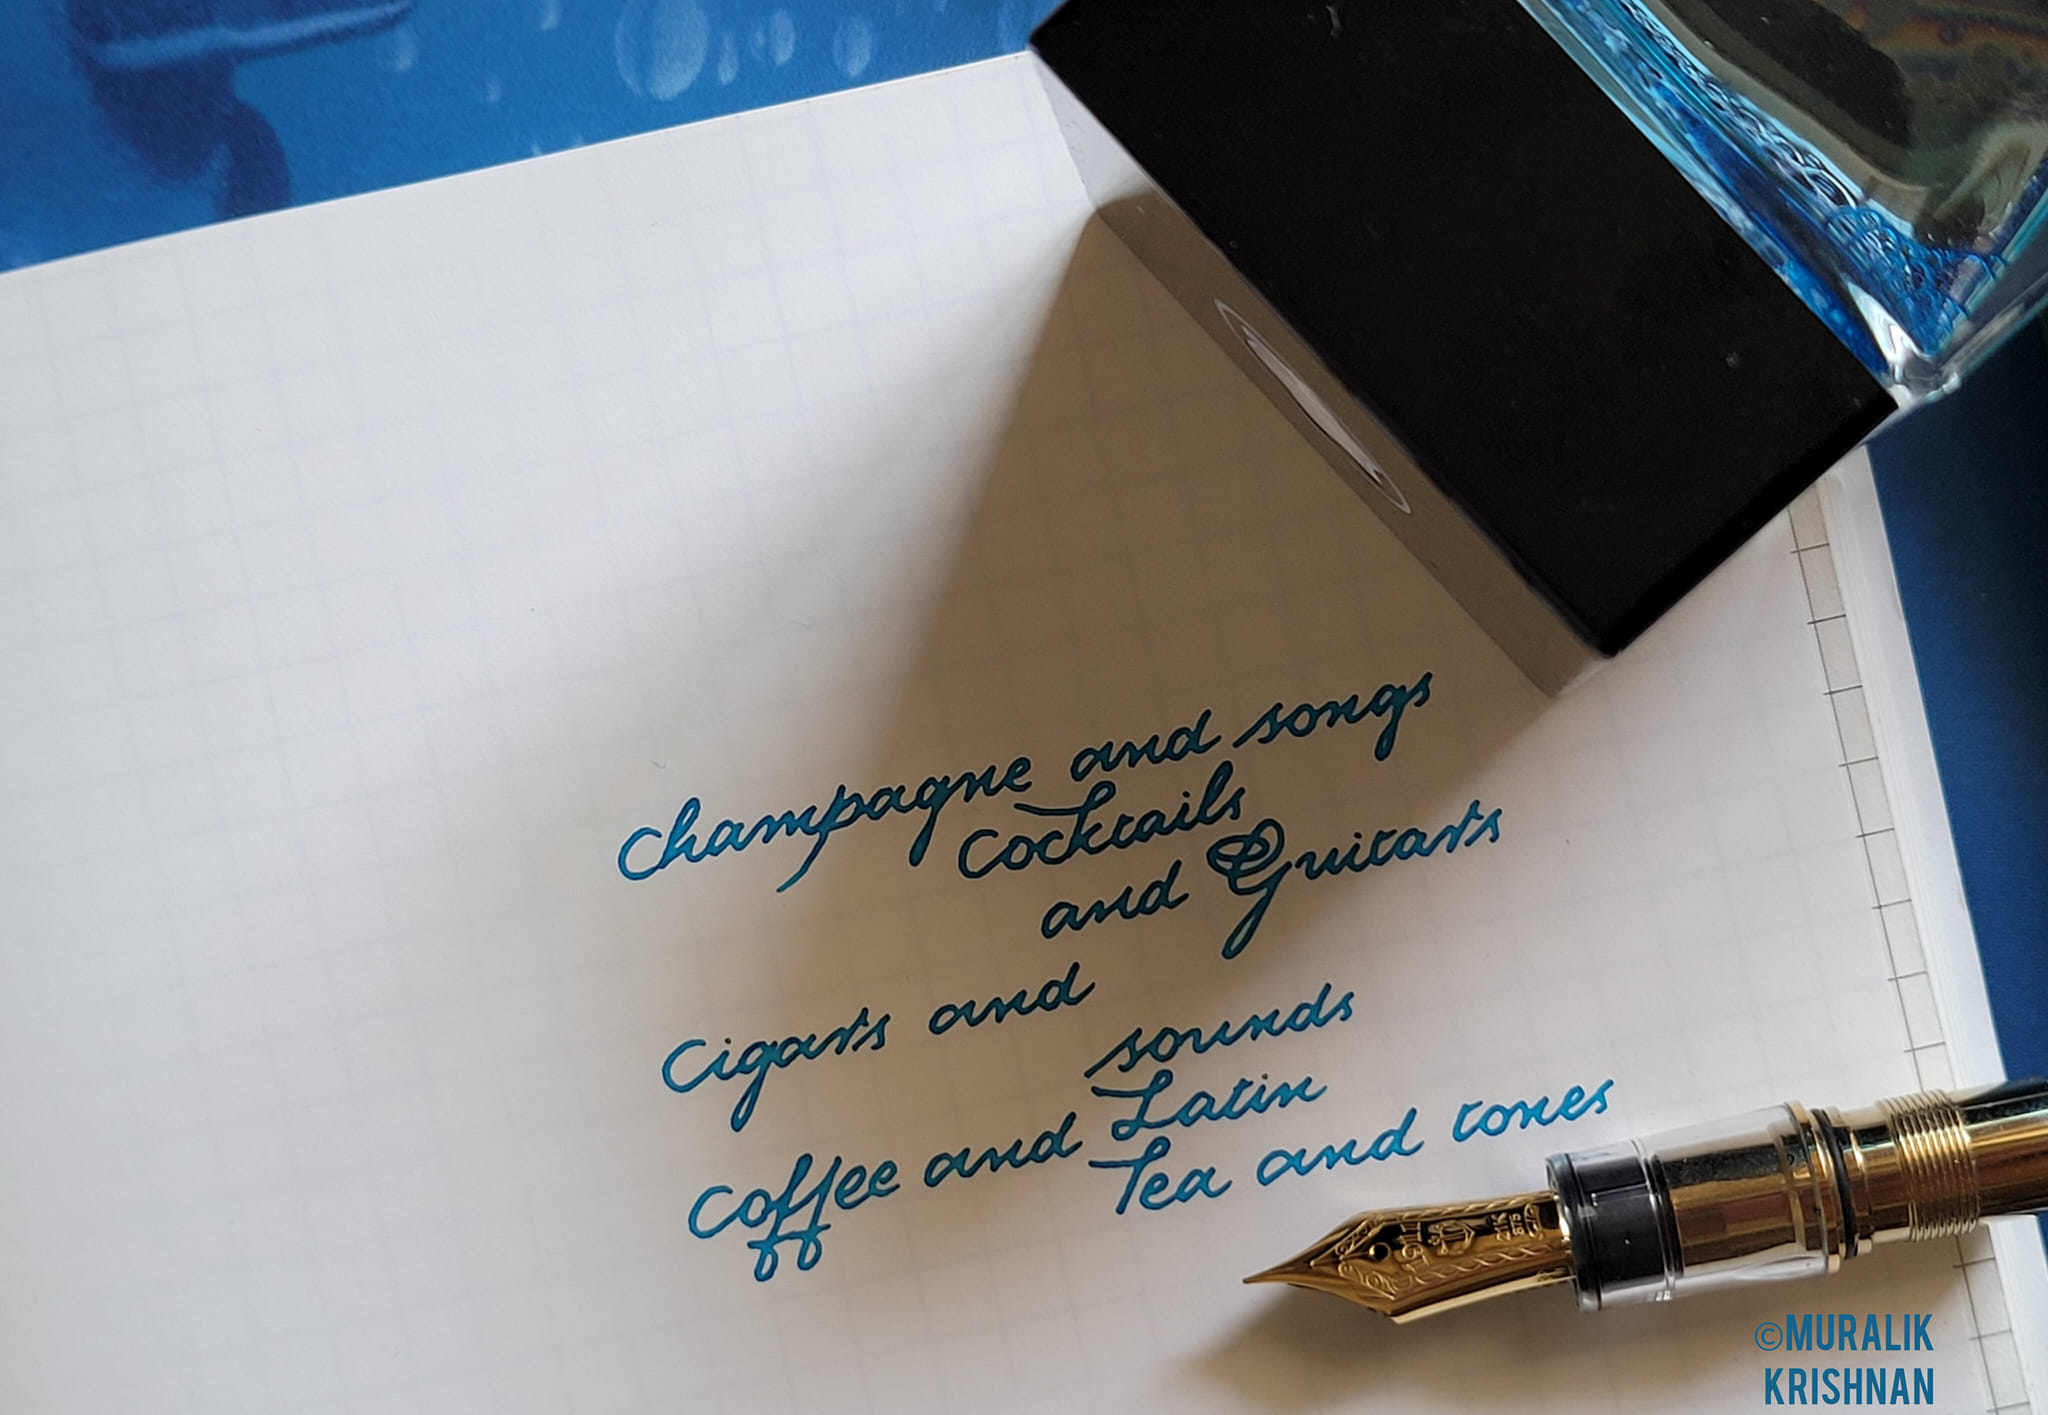 Champagne and songs
Cocktails
and Guitars
Cigars and
sounds
Coffee and Latin
Tea and tones
21K
875
©MURALIK
KRISHNAN